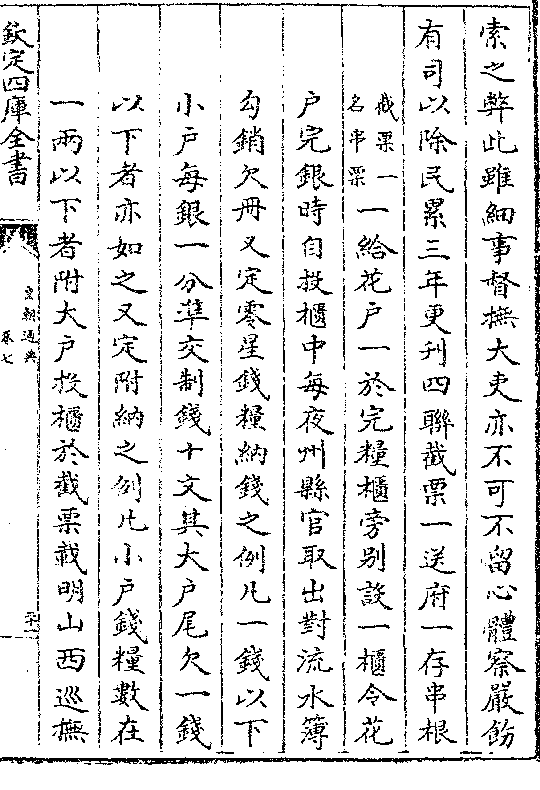 索之弊此雖細事督撫大吏亦不可不留心體察嚴飭
有司以除民累三年更刋四聯截票一送府一存串根
截票一
名串票
一給花戸一於完糧櫃旁别設一櫃令花
戸完銀時自投櫃中每夜州縣官取出對流水簿
勾銷欠冊又定零星錢糧納錢之例凡一錢以下
小戸每銀一分準交制錢十文其大戸尾欠一錢
以下者亦如之又定附納之例凡小戸錢糧數在
一兩以下者附大戸投櫃於截票載明山西巡撫
欽定四庫全書
皇朝通典
卷七